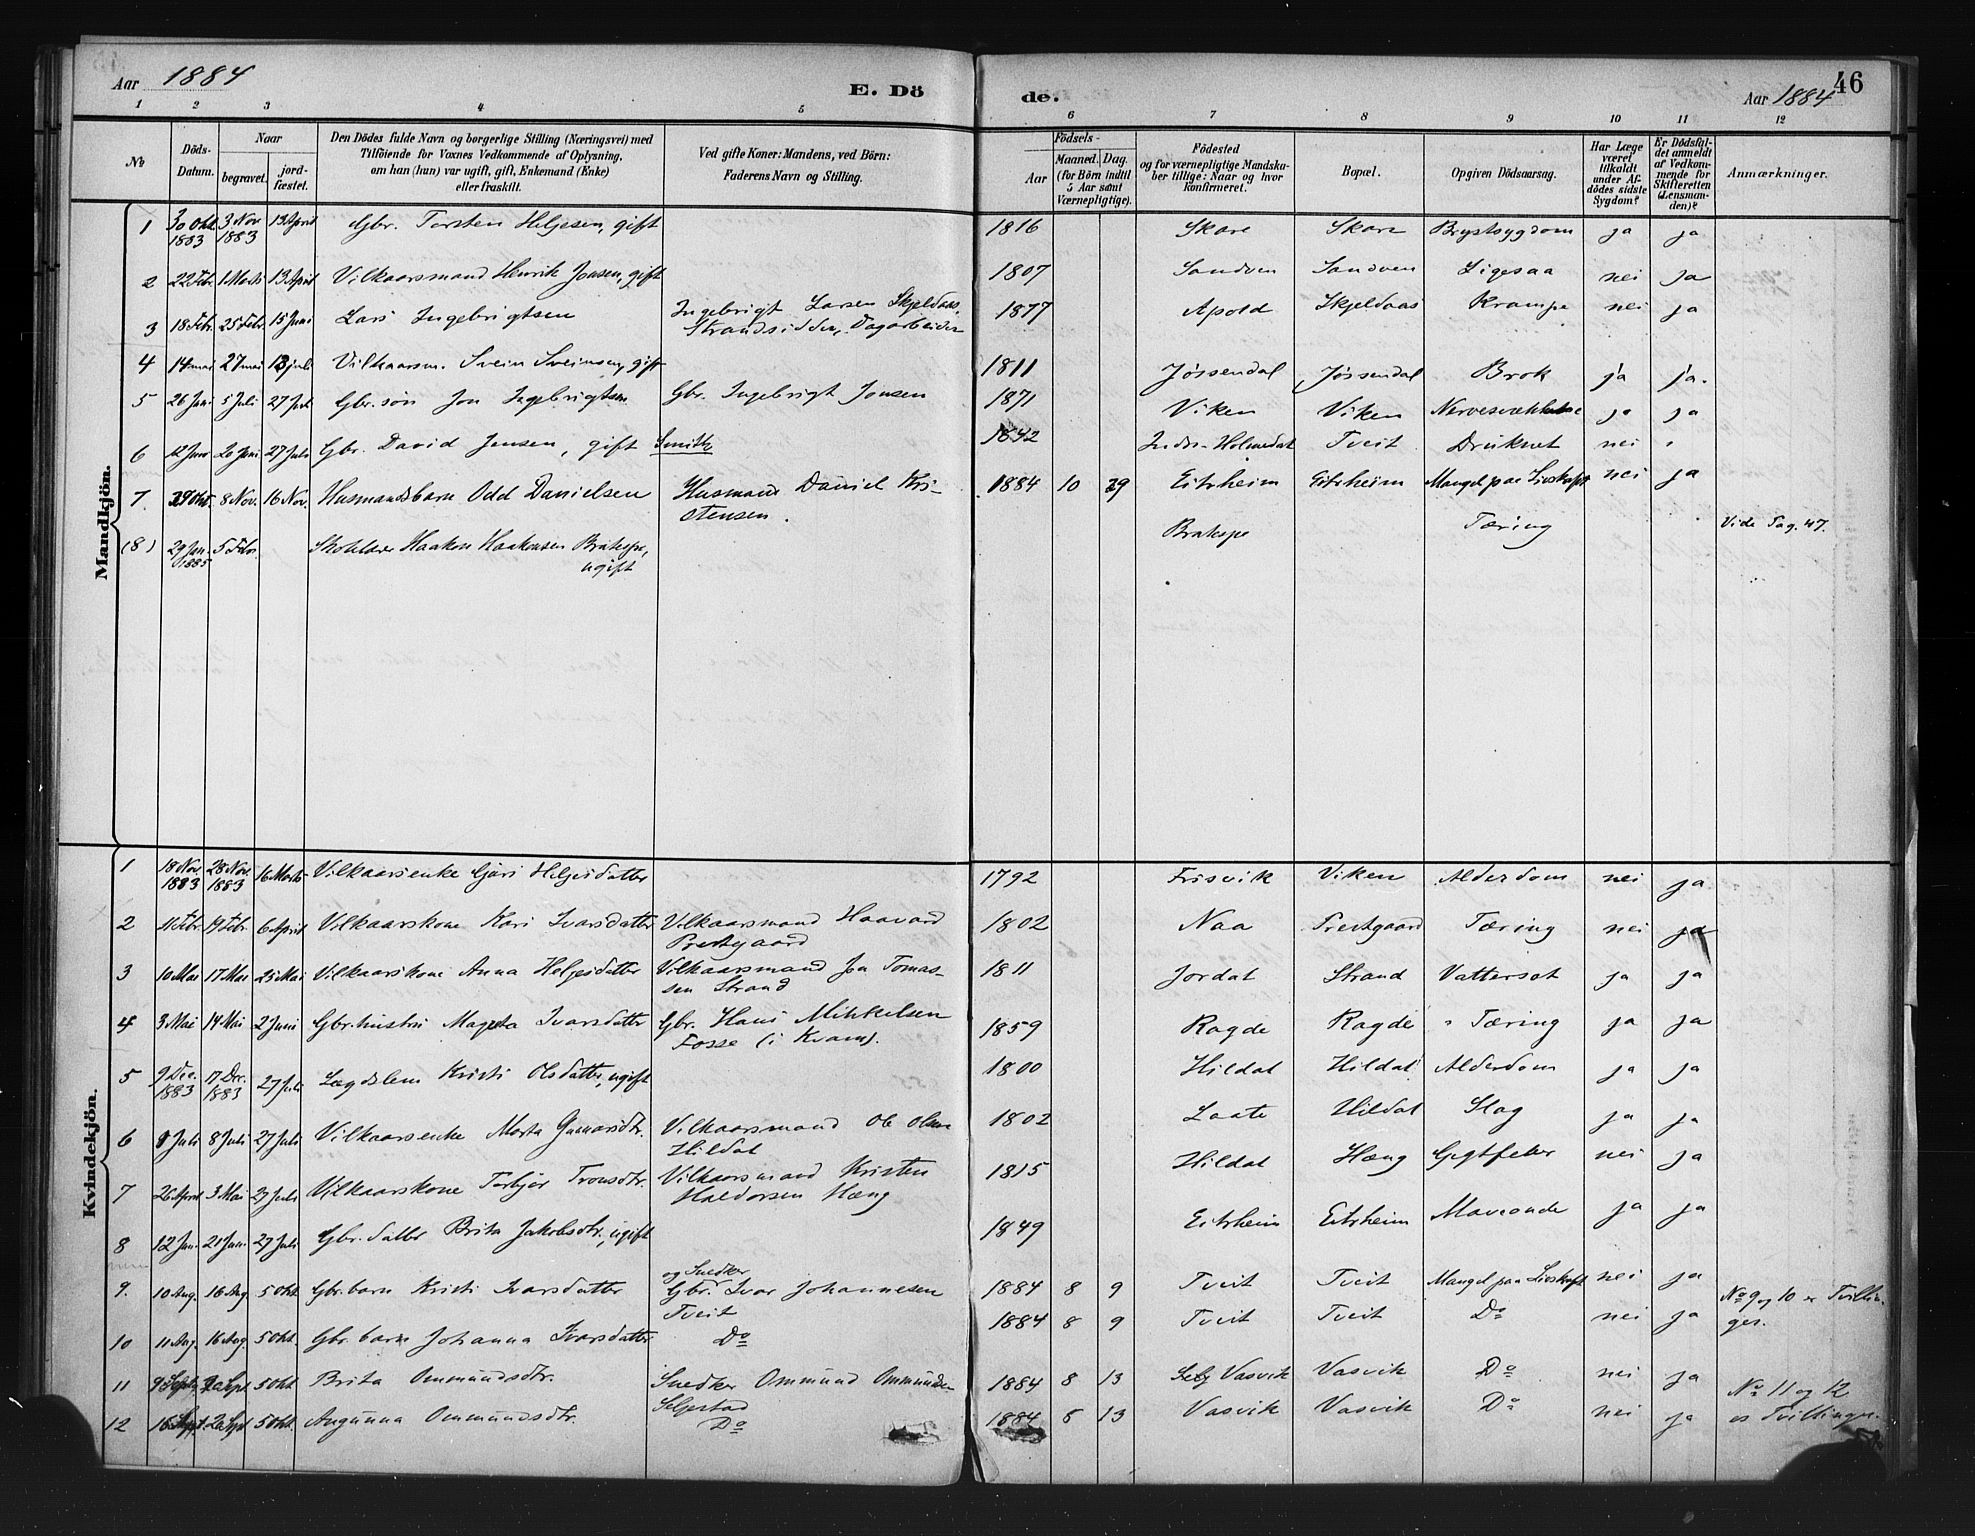 Aar 1884
E. Dö
de.
Aar 1884
46
1 2 3 4 5 6 7 8 9 10 11 12
No
Döds-Datum.
Naar
begravet.
jord-fæstet.
Den Dödes fulde Navn og borgerlige Stilling (Næringsvei) med
Tilföiende for Voxnes Vedkommende af Oplysning,
om han (hun) var ugift, gift, Enkemand (Enke)
eller fraskilt.
Ved gifte Koner: Mandens, ved Börn:
Faderens Navn og Stilling.
Födsels-
Aar
Maaned. Dag.
(for Börn indtil
5 Aar samt
Værnepligtige).
Födested
og for værnepligtige Mandska-
ber tillige: Naar og hvor
konfirmeret.
Bopæl.
Opgiven Dödsaarsag.
Har Læge
været
tilkaldt
under Af-
dödes sidste
Sygdom?
Er Dödsfal-
det anmeldt
af Vedkom-
mende for
Skifteretten
(Lensman-
den)?
Anmærkninger.
Mandkjön.
1 30 Okt. 1883 3 Nov. 1883 13 April Gbr. Torsten Heljesen, gift 1816 Skare Skare Brystsygdom ja ja
2 22 Febr. 1 Marts 13 April Vilkaarsmand Henrik Jonsen, gift 1807 Sandven Sandven Ligesaa nei ja
3 18 Febr. 25 Febr. 15 Juni Lars Ingebrigtsen Ingebrigt Larsen Skjeldaas,
Strandsidden, Dagarbeider 1877 Apold Skjeldaas Krampe nei ja
4 14 mai 27 mai 13 juli Vilkaarsm. Svein Sveinsen, gift 1811 Jøssendal Jøssendal Brok ja ja.
5 26 Juni 5 Juli 27 Juli Gbr. søn Jon Ingebrigtsen Gbr. Ingebrigt Jonsen 1871 Viken Viken ja ja
6 12 Juni 20 Juni 27 Juli Gbr. David Jensen, gift Smith 1842 Indre-Holmedal Tveit Druknet nei
7. 29 Okt. 8 Nov. 16 Nov. Husmandsbarn Odd Danielsen Husmand Daniel Kri-
stensen. 1884 10 29 Eitrheim Eitrheim Mangel paa Livskraft nei ja
(8) 29 Jan. 1885 5 Febr. Haakon Haakonsen
ugift Tæring Vide Pag. 47.
Kvindekjön.
1 18 Nov. 1883 28 Nov. 1883 16 Marts Vilkaarsenke Guri Helgesdatter 1792 Frisvik Viken Alderdom nei ja
2 11 Febr. 19 Febr. 6 April Vilkaarskone Kari Ivarsdatter Vilkaarsmand Haavard
Prestgaard 1802 Naa Prestgaard Tæring nei ja
3 10 Mai 17 Mai 25 Mai Vilkaarskone Anna Helgesdatter Vilkaarsmand Jon Tomas-
sen Strand 1811 Jordal Strand Vattersot ja ja
4 3 Mai 14 Mai 2 Juni Gbr. hustru Ivarsdatter Gbr. Hans Mikkelsen
Fosse (i Kvam). 1859 Ragde Ragde Tæring ja ja
5 9 Dec. 1883 17 Dec. 1883 27 Juli Lægdslem Kristi Olsdatter, ugift 1800 Hildal Hildal Alderdom ja ja
6 Juli 8 Juli 27 Juli Vilkaarsenke Marta Gunnarsdtr. Vilkaarsmand Ole Olsen
Hildal 1802 Laate Hildal Slag ja ja
7 26 April 3 Mai 27 Juli Vilkaarskone Torbjør Tronsdtr. Vilkaarsmand Kristen
Haldorsen Hæng 1815 Hildal Hæng Gigtfeber nei ja
8 12 Jan. 21 Jan. 27 Juli Gbr. datter Brita Jakobsdtr., ugift 1849 Eitrheim Eitrheim ja ja
9. 10 Aug. 16 Aug. 5 Okt. Gbr. barn Kristi Ivarsdatter og Snedker
Gbr. Ivar Johannesen
Tveit 1884 8 9 Tveit Tveit Mangel paa Livskraft nei ja No 9 og 10 er Tvillin-
ger.
10 11 Aug. 16 Aug. 5 Okt. Gbr. barn Johanna Ivarsdatter Do 1884 8 9 Tveit Tveit Do nei ja
11 9 Sept. Sept. 5 Okt. Brita Ommundsdtr. Snedker Ommund Ommundsen
Seljestad 1884 8 13 Vasvik Vasvik Do nei ja No 11 og 12
er Tvillinger.
12 16 Sept. 20 Sept. 5 Okt. Angunna Ommundsdtr. Do 1884 8 13 Vasvik Vasvik Do nei ja